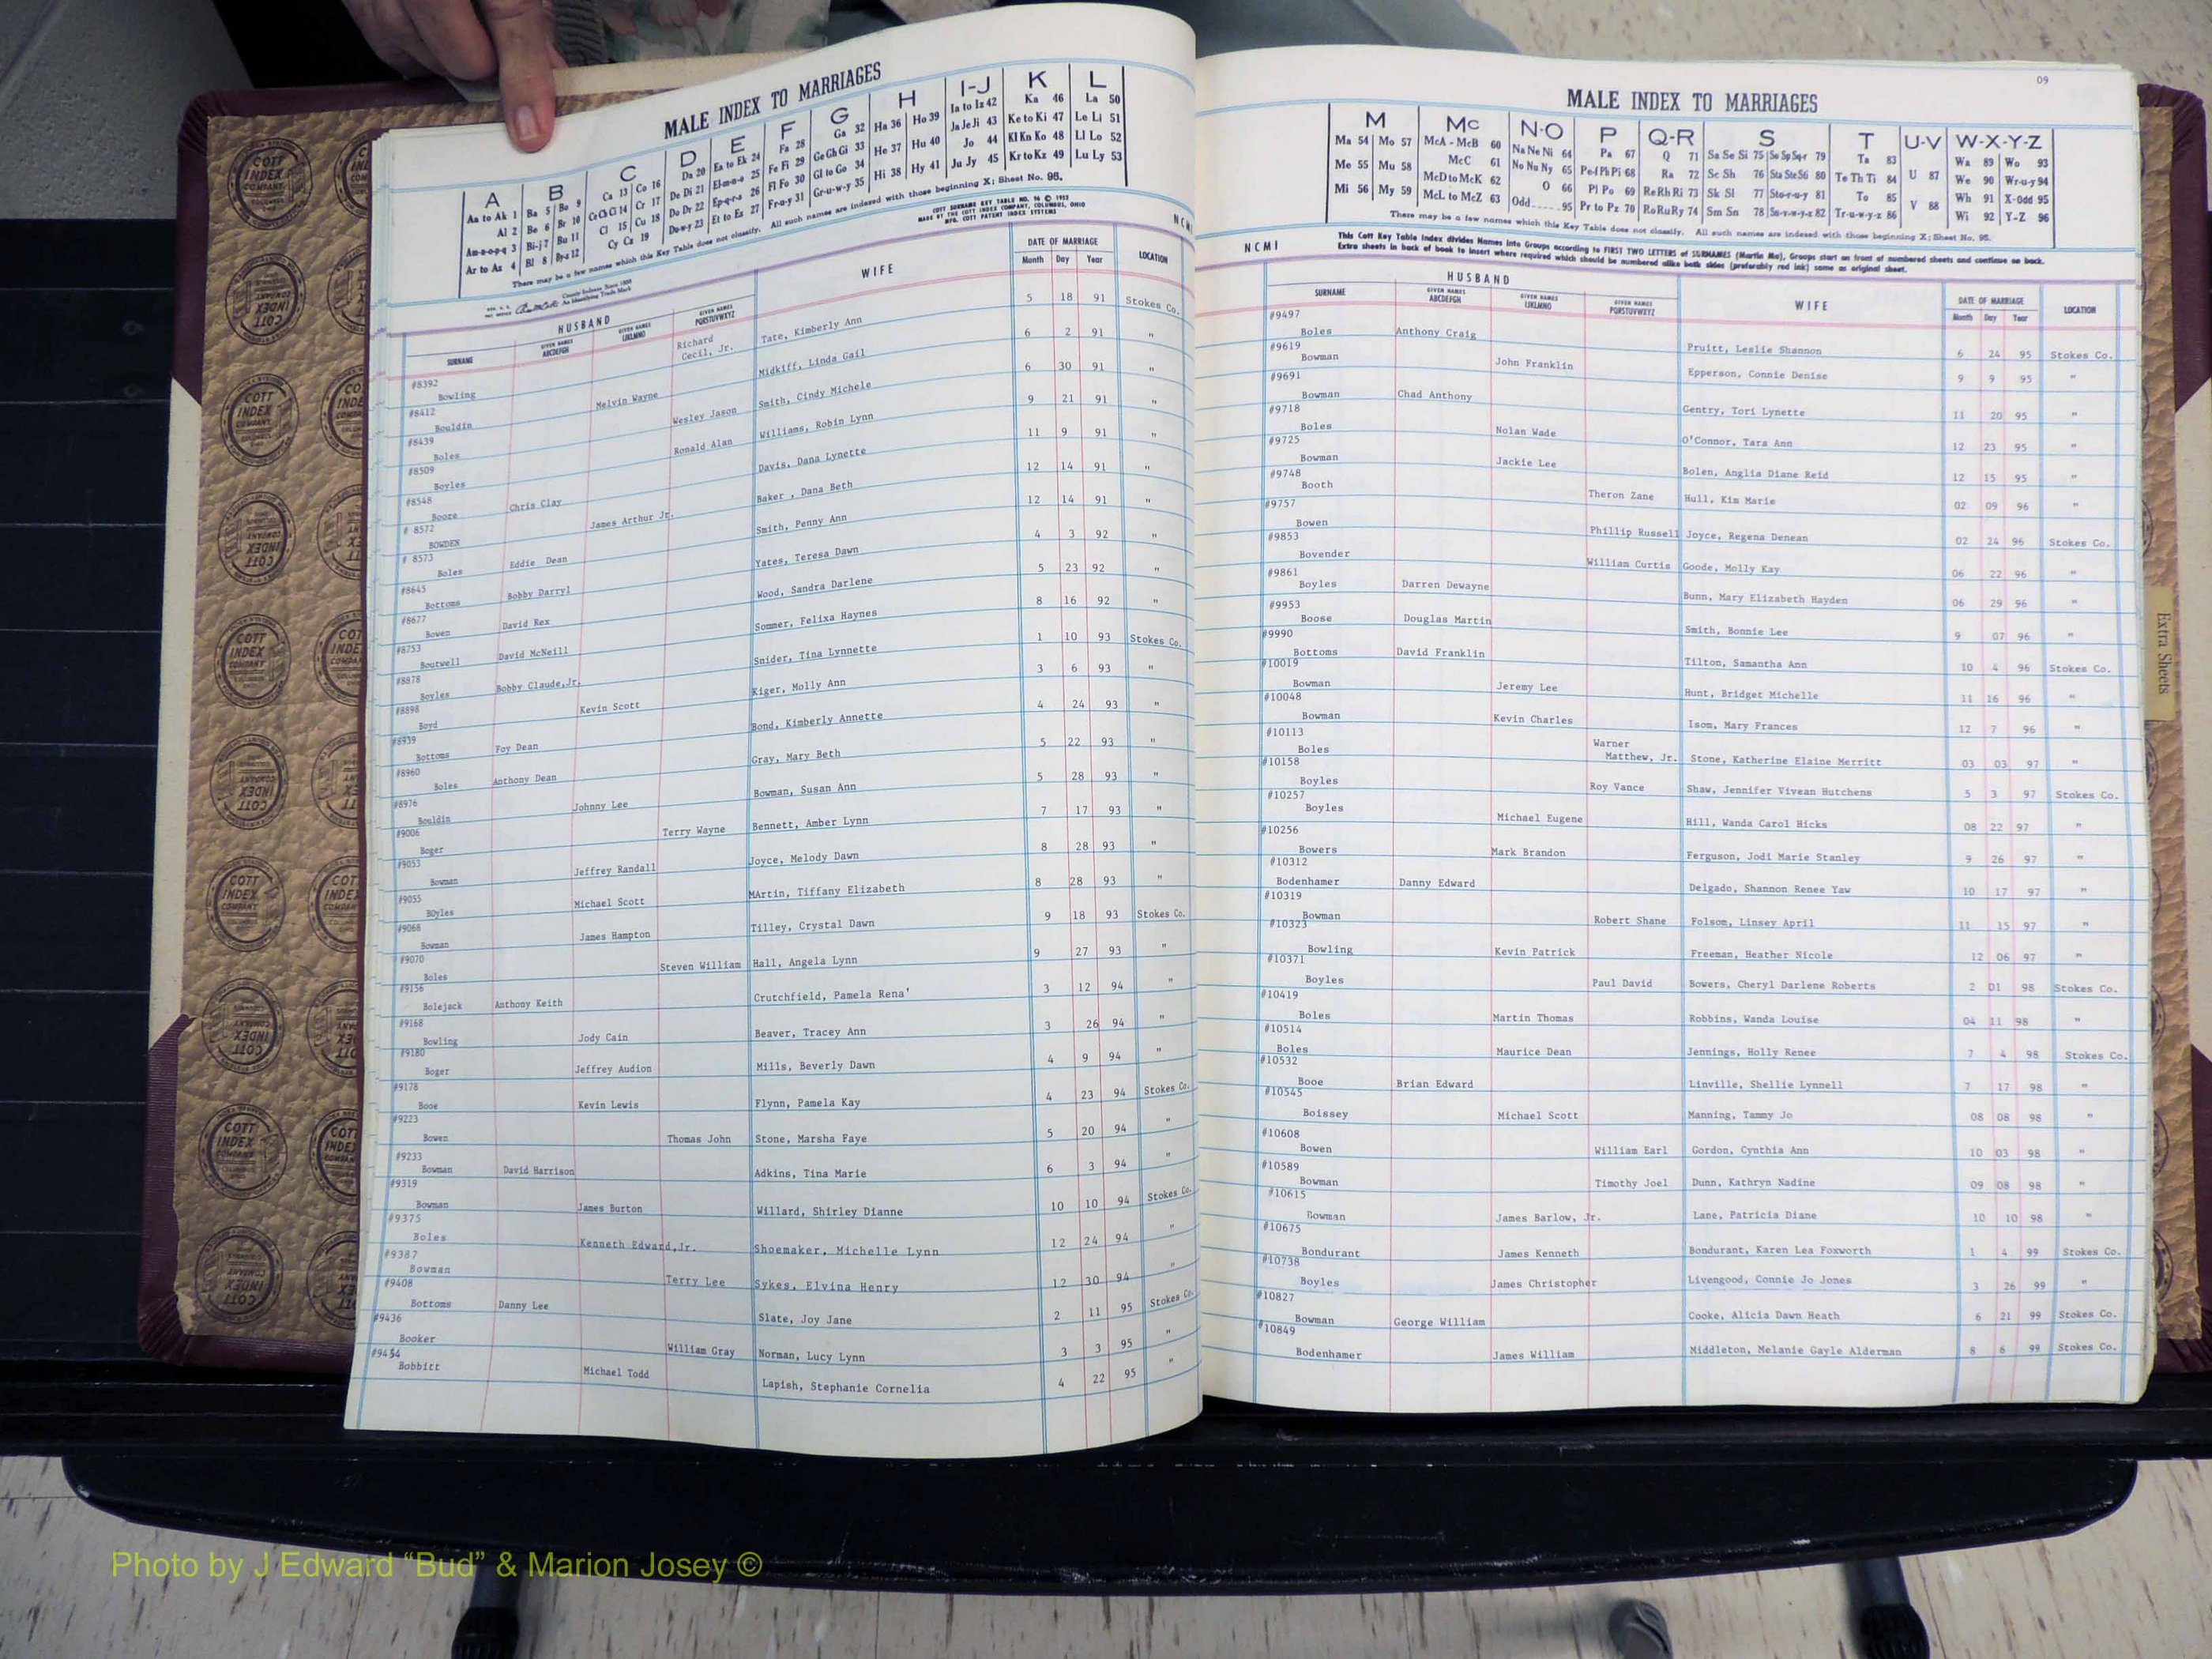 MALE INDEX TO MARRIAGES
A B C D E F G H I-J K L
Aa to Ak 1 Ba 5 Bo 9 Ca 13 Co 16 Da 20 Ea to Ek 24 Fa 28 Ga 32 Ha 36 Ho 39 Ia to Iz 42 Ka 46 La 50
Al 2 Be 6 Br 10 Ce Ch Ci 14 Cr 17 De Di 21 El-m-n-o 25 Fe Fi 29 Ge Gh Gi 33 He 37 Hu 40 Ja Je Ji 43 Ke to Ki 47 Le Li 51
Am-n-o-p-q 3 Bi-j-? Bu 11 Cl 15 Cu 18 Do Dr 22 Ep-q-r-s 26 Fl Fo 30 Gl to Go 34 Hi 38 Hy 41 Jo 44 Kl Kn Ko 48 Ll Lo 52
Ar to Az 4 Bl 8 By-z 12 Cy Cz 19 Du-w-y 23 Et to Ez 27 Fr-u-y 31 Gr-u-w-y 35 Ju Jy 45 Kr to Kz 49 Lu Ly 53
There may be a few names which this Key Table does not classify. All such names are indexed with those beginning X; Sheet No. 96.
COTT SURNAME KEY TABLE NO. 96 © 1952
MADE BY THE COTT INDEX COMPANY, COLUMBUS, OHIO
MFG. COTT PATENT INDEX SYSTEMS
HUSBAND WIFE DATE OF MARRIAGE LOCATION
SURNAME GIVEN NAMES ABCDEFGH GIVEN NAMES IJKLMNO GIVEN NAMES PQRSTUVWXYZ Month Day Year
#8392 Bowling Richard Cecil, Jr. Tate, Kimberly Ann 5 18 91 Stokes Co.
#8412 Bouldin Melvin Wayne Midkiff, Linda Gail 6 2 91 "
#8439 Boles Wesley Jason Smith, Cindy Michele 6 30 91 "
#8509 Boyles Ronald Alan Williams, Robin Lynn 9 21 91 "
#8548 Booze Chris Clay Davis, Dana Lynette 11 9 91 "
# 8572 BOWDEN James Arthur Jr. Baker , Dana Beth 12 14 91 "
# 8573 Boles Eddie Dean Smith, Penny Ann 12 14 91 "
#8645 Bottoms Bobby Darryl Yates, Teresa Dawn 4 3 92 "
#8677 Bowen David Rex Wood, Sandra Darlene 5 23 92 "
#8753 Boutwell David McNeill Sommer, Felixa Haynes 8 16 92 "
#8878 Boyles Bobby Claude,Jr. Snider, Tina Lynnette 1 10 93 Stokes Co.
#8898 Boyd Kevin Scott Kiger, Molly Ann 3 6 93 "
#8939 Bottoms Foy Dean Bond, Kimberly Annette 4 24 93 "
#8960 Boles Anthony Dean Gray, Mary Beth 5 22 93 "
#8976 Bouldin Johnny Lee Bowman, Susan Ann 5 28 93 "
#9006 Boger Terry Wayne Bennett, Amber Lynn 7 17 93 "
#9053 Bowman Jeffrey Randall Joyce, Melody Dawn 8 28 93 "
#9055 BOyles Michael Scott MArtin, Tiffany Elizabeth 8 28 93 "
#9068 Bowman James Hampton Tilley, Crystal Dawn 9 18 93 Stokes Co.
#9070 Boles Steven William Hall, Angela Lynn 9 27 93 "
#9156 Bolejack Anthony Keith Crutchfield, Pamela Rena' 3 12 94 "
#9168 Bowling Jody Cain Beaver, Tracey Ann 3 26 94 "
#9180 Boger Jeffrey Audion Mills, Beverly Dawn 4 9 94 "
#9178 Booe Kevin Lewis Flynn, Pamela Kay 4 23 94 Stokes Co.
#9223 Bowen Thomas John Stone, Marsha Faye 5 20 94 "
#9233 Bowman David Harrison Adkins, Tina Marie 6 3 94 "
#9319 Bowman James Burton Willard, Shirley Dianne 10 10 94 Stokes Co.
#9375 Boles Kenneth Edward,Jr. Shoemaker, Michelle Lynn 12 24 94 "
#9387 Bowman Terry Lee Sykes, Elvina Henry 12 30 94 "
#9408 Bottoms Danny Lee Slate, Joy Jane 2 11 95 Stokes Co.
#9436 Booker William Gray Norman, Lucy Lynn 3 3 95 "
#9454 Bobbitt Michael Todd Lapish, Stephanie Cornelia 4 22 95 "
09
MALE INDEX TO MARRIAGES
M Mc N-O P Q-R S T U-V W-X-Y-Z
Ma 54 Mo 57 McA - McB 60 Na Ne Ni 64 Pa 67 Q 71 Sa Se Si 75 So Sp Sq-r 79 Ta 83 U 87 Wa 89 Wo 93
Me 55 Mu 58 McC 61 No Nu Ny 65 Pe-f Ph Pi 68 Ra 72 Sc Sh 76 Sta Ste Sti 80 Te Th Ti 84 We 90 Wr-u-y 94
Mi 56 My 59 McD to McK 62 O 66 Pl Po 69 Re Rh Ri 73 Sk Sl 77 Sto-r-u-y 81 To 85 V 88 Wh 91 X-Odd 95
McL to McZ 63 Odd 95 Pr to Pz 70 Ro Ru Ry 74 Sm Sn 78 Su-v-w-y-z 82 Tr-u-w-y-z 86 Wi 92 Y-Z 96
There may be a few names which this Key Table does not classify. All such names are indexed with those beginning X; Sheet No. 96.
NCMI
This Cott Key Table Index divides Names into Groups according to FIRST TWO LETTERS of SURNAMES (Martin Ma), Groups start on front of numbered sheets and continue on back.
Extra sheets in back of book to insert where required which should be numbered alike both sides (preferably red ink) same as original sheet.
HUSBAND WIFE DATE OF MARRIAGE LOCATION
SURNAME GIVEN NAMES ABCDEFGH GIVEN NAMES IJKLMNO GIVEN NAMES PQRSTUVWXYZ Month Day Year
#9497 Boles Anthony Craig Pruitt, Leslie Shannon 6 24 95 Stokes Co.
#9619 Bowman John Franklin Epperson, Connie Denise 9 9 95 "
#9691 Bowman Chad Anthony Gentry, Tori Lynette 11 20 95 "
#9718 Boles Nolan Wade O'Connor, Tara Ann 12 23 95 "
#9725 Bowman Jackie Lee Bolen, Anglia Diane Reid 12 15 95 "
#9748 Booth Theron Zane Hull, Kim Marie 02 09 96 "
#9757 Bowen Phillip Russell Joyce, Regena Denean 02 24 96 Stokes Co.
#9853 Bovender William Curtis Goode, Molly Kay 06 22 96 "
#9861 Boyles Darren Dewayne Bunn, Mary Elizabeth Hayden 06 29 96 "
#9953 Boose Douglas Martin Smith, Bonnie Lee 9 07 96 "
#9990 Bottoms David Franklin Tilton, Samantha Ann 10 4 96 Stokes Co.
#10019 Bowman Jeremy Lee Hunt, Bridget Michelle 11 16 96 "
#10048 Bowman Kevin Charles Isom, Mary Frances 12 7 96 "
#10113 Boles Warner Matthew, Jr. Stone, Katherine Elaine Merritt 03 03 97 "
#10158 Boyles Roy Vance Shaw, Jennifer Vivean Hutchens 5 3 97 Stokes Co.
#10257 Boyles Michael Eugene Hill, Wanda Carol Hicks 08 22 97 "
#10256 Bowers Mark Brandon Ferguson, Jodi Marie Stanley 9 26 97 "
#10312 Bodenhamer Danny Edward Delgado, Shannon Renee Yaw 10 17 97 "
#10319 Bowman Robert Shane Folsom, Linsey April 11 15 97 "
#10323 Bowling Kevin Patrick Freeman, Heather Nicole 12 06 97 "
#10371 Boyles Paul David Bowers, Cheryl Darlene Roberts 2 01 98 Stokes Co.
#10419 Boles Martin Thomas Robbins, Wanda Louise 04 11 98 "
#10514 Boles Maurice Dean Jennings, Holly Renee 7 4 98 Stokes Co.
#10532 Booe Brian Edward Linville, Shellie Lynnell 7 17 98 "
#10545 Boissey Michael Scott Manning, Tammy Jo 08 08 98 "
#10608 Bowen William Earl Gordon, Cynthia Ann 10 03 98 "
#10589 Bowman Timothy Joel Dunn, Kathryn Nadine 09 08 98 "
#10615 Bowman James Barlow, Jr. Lane, Patricia Diane 10 10 98 "
#10675 Bondurant James Kenneth Bondurant, Karen Lea Foxworth 1 4 99 Stokes Co.
#10738 Boyles James Christopher Livengood, Connie Jo Jones 3 26 99 "
#10827 Bowman George William Cooke, Alicia Dawn Heath 6 21 99 Stokes Co.
#10849 Bodenhamer James William Middleton, Melanie Gayle Alderman 8 6 99 Stokes Co.
Extra Sheets
COTT INDEX COMPANY
Photo by J Edward “Bud” & Marion Josey ©